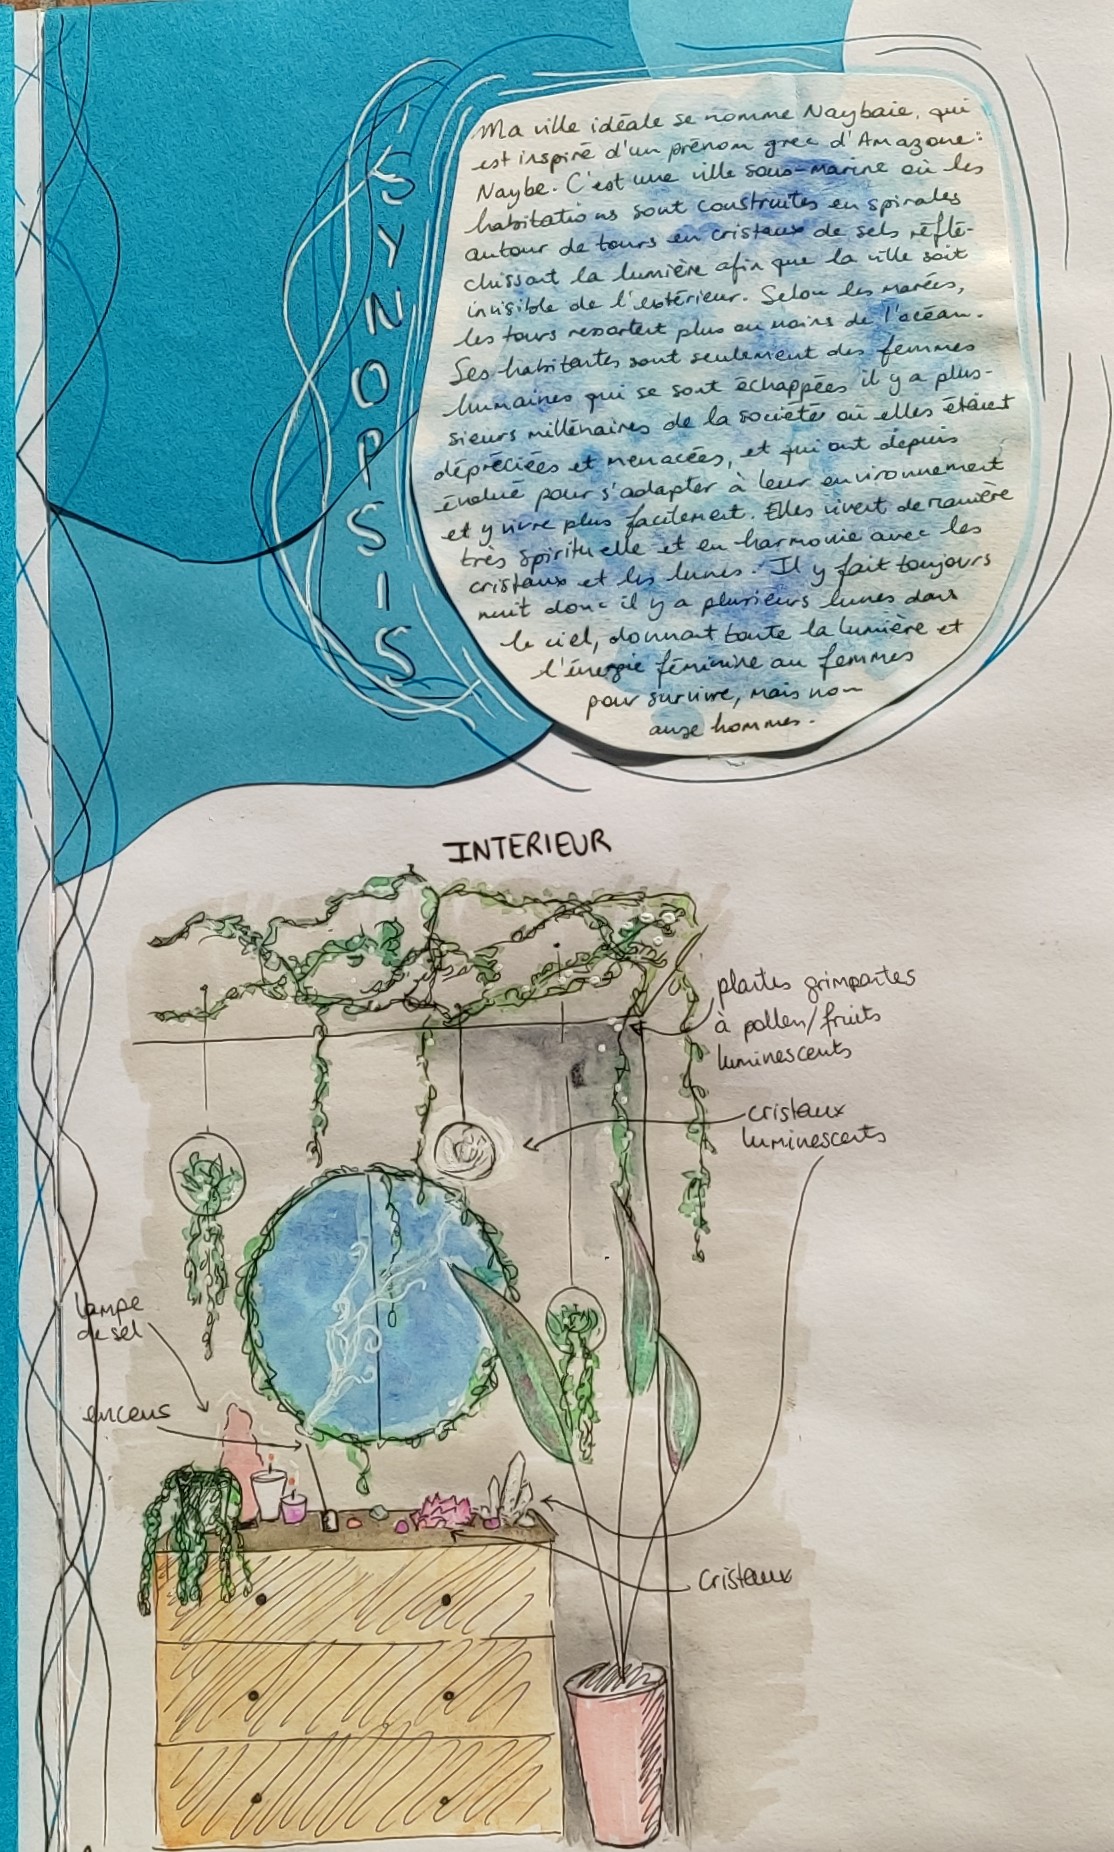 SYNOPSIS
Ma ville idéale se nomme Naybaie, qui
est inspiré d'un prénom grec d'Amazone :
Naybe. C'est une ville sous-marine où les
habitations sont construites en spirales
autour de tours en cristaux de sels réflé-
chissant la lumière afin que la ville soit
invisible de l'extérieur. Selon les marées,
les tours ressortent plus ou moins de l'océan.
Ses habitantes sont seulement des femmes
humaines qui se sont échappées il y a plus-
sieurs millénaires de la société où elles étaient
dépréciées et menacées, et qui ont depuis
évolué pour s'adapter à leur environnement
et y vivre plus facilement. Elles vivent de manière
très spirituelle et en harmonie avec les
cristaux et les lunes. Il y fait toujours
nuit donc il y a plusieurs lunes dans
le ciel, donnant toute la lumière et
l'énergie féminine au femmes
pour survivre, mais non
aux hommes.
INTERIEUR
plantes grimpantes
à pollen/fruits
luminescents
cristaux
luminescents
lampe
de sel
encens
cristaux